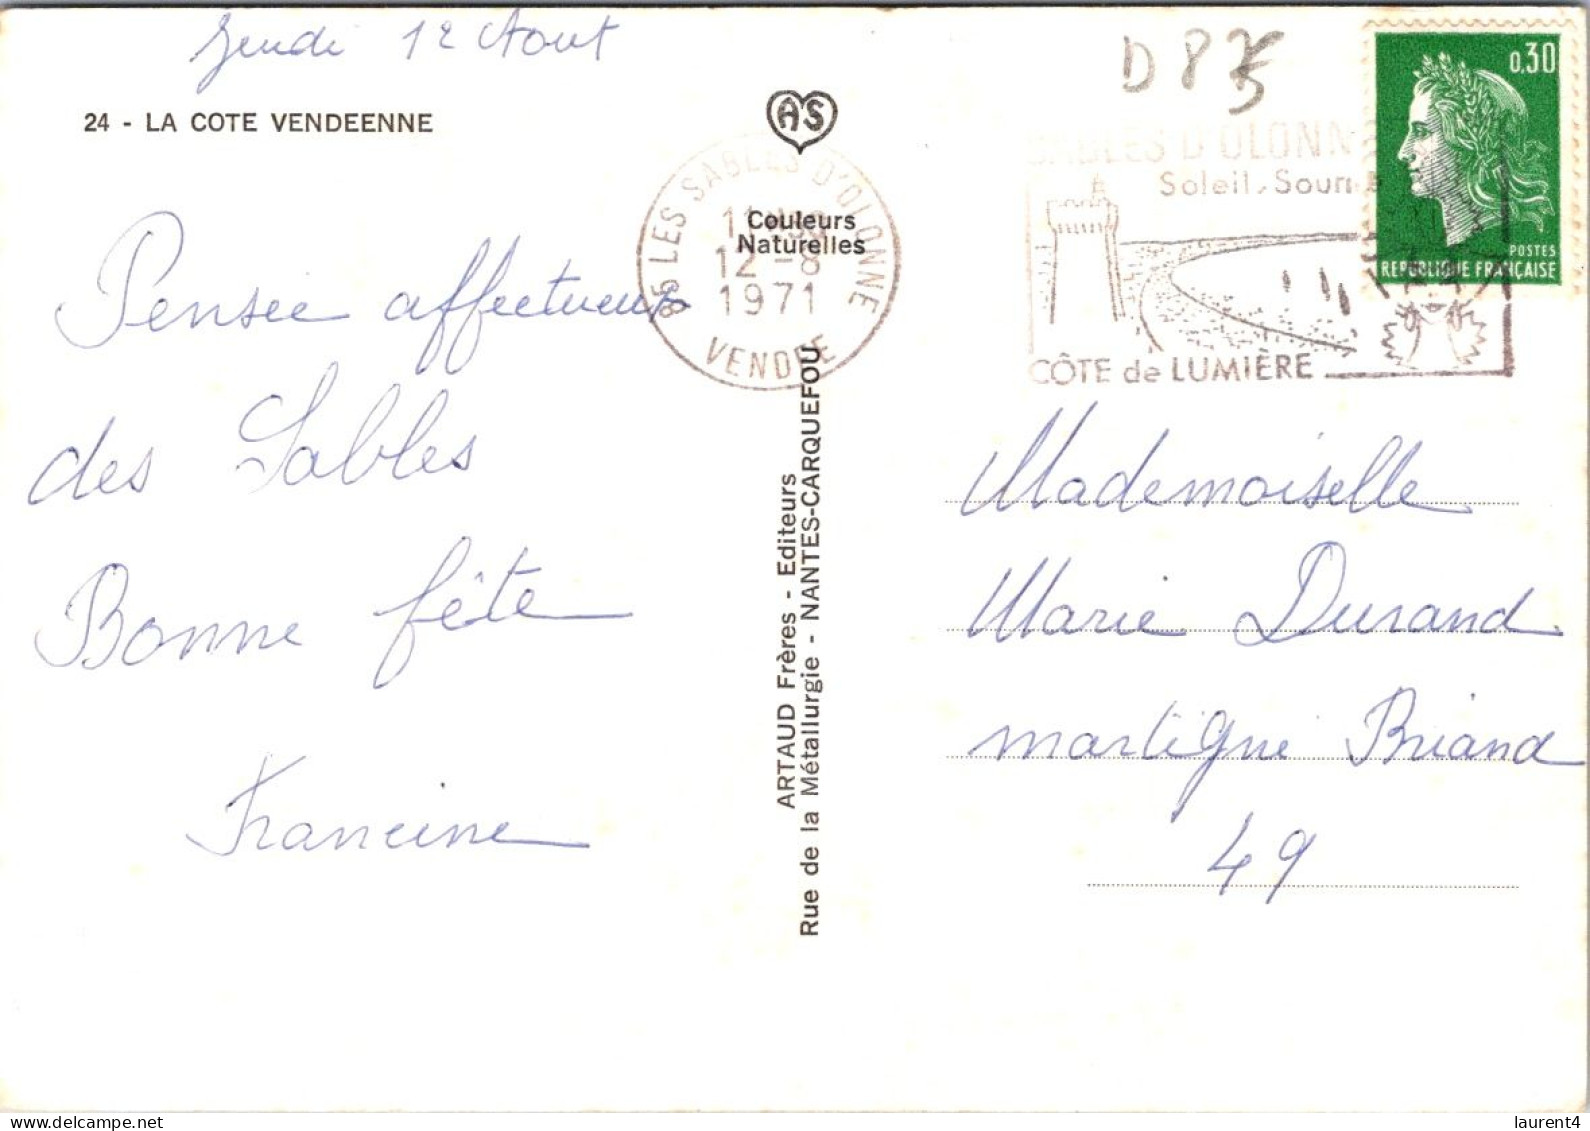 Jeudi 12 Aout
24 - LA COTE VENDEENNE
Pensée affectueuse
des Sables
Bonne fête
Francine
AS
Couleurs
Naturelles
85 LES SABLES D'OLONNE
12 -8
1971
VENDEE
ARTAUD Frères - Editeurs
Rue de la Métallurgie - NANTES-CARQUEFOU
D 85
SABLES D'OLONN
Soleil, Souri
CÔTE de LUMIÈRE
0,30
POSTES
REPUBLIQUE FRANÇAISE
Mademoiselle
Marie Durand
martigné Briand
49
laurent4